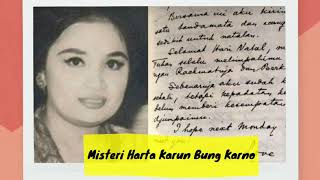 "Bersama ini aku kirim
satu tandamata dan uang
sedikit untuk natalan.
Selamat Hari Natal, m
Tuhan selalu melimpahi
ngan Rachmatnja dan Berk
Sebenarnja aku sudah
tetapi kepadatan
belum memberi kesempatan
djumpaimu.
I hope next Monday
Misteri Harta Karun Bung Karno